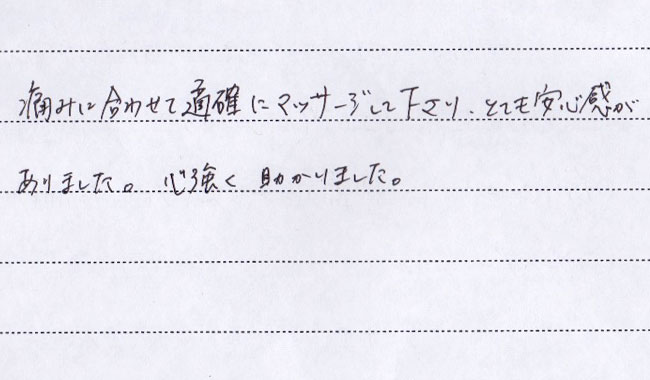 痛みに合わせて適確にマッサージして下さり、とても安心感が
ありました。心強く助かりました。